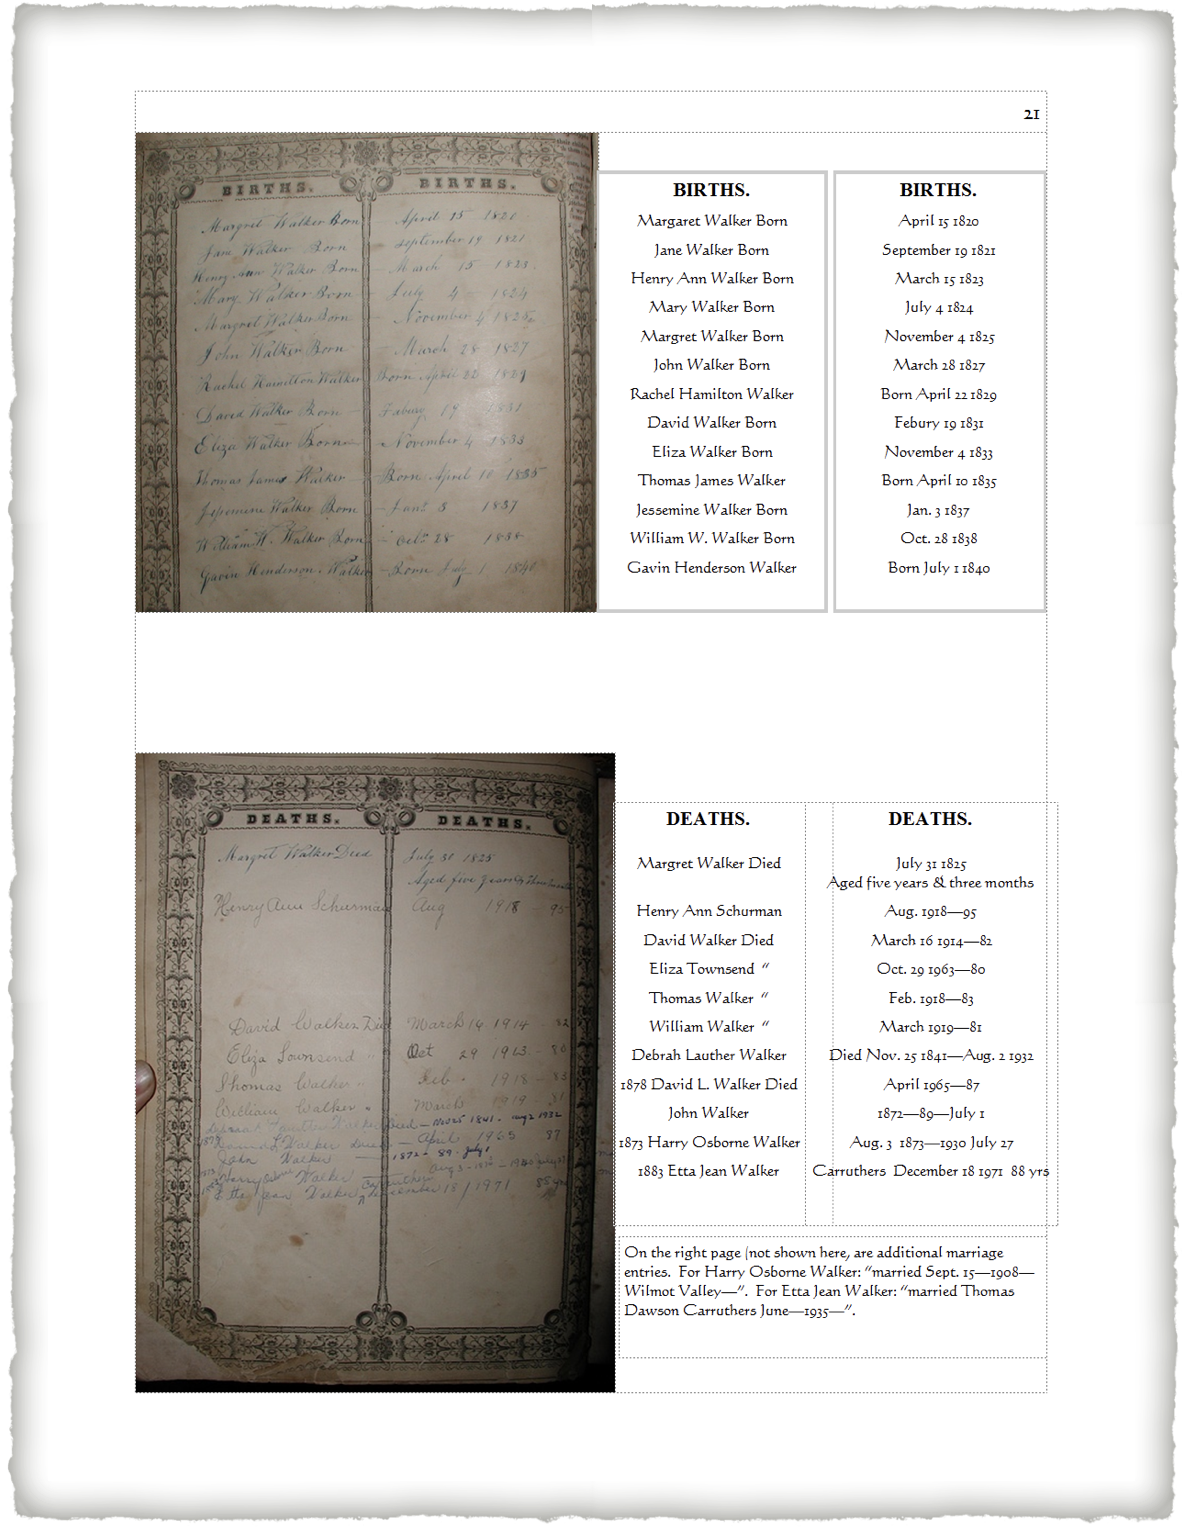 21
BIRTHS. BIRTHS.
Margret Walker Born April 15 1821
Jane Walker Born September 19 1821
Henry Ann Walker Born March 15 1823.
Mary Walker Born July 4 1824
Margret Walker Born November 4 1825
John Walker Born March 28 1827
Rachel Hamilton Walker Born April 22 1829
David Walker Born Febury 19 1831
Eliza Walker Born November 4 1833
Thomas James Walker Born April 10 1835
Jessemine Walker Born Jan. 3 1837
William W. Walker Born Oct. 28 1838
Gavin Henderson Walker Born July 1 1840
BIRTHS. BIRTHS.
Margaret Walker Born April 15 1820
Jane Walker Born September 19 1821
Henry Ann Walker Born March 15 1823
Mary Walker Born July 4 1824
Margret Walker Born November 4 1825
John Walker Born March 28 1827
Rachel Hamilton Walker Born April 22 1829
David Walker Born Febury 19 1831
Eliza Walker Born November 4 1833
Thomas James Walker Born April 10 1835
Jessemine Walker Born Jan. 3 1837
William W. Walker Born Oct. 28 1838
Gavin Henderson Walker Born July 1 1840
DEATHS. DEATHS.
Margret Walker Died July 31 1825
Aged five years & three
Henry Ann Schurman Aug 1918 95
David Walker Died March 16 1914 82
Eliza Townsend " Oct 29 1963 - 80
Thomas Walker " Feb. 1918 - 83
William Walker " March 1919 - 81
Walker Died - Nov 25 1841 - Aug 2 1932
L Walker April 1965 87
John Walker 1872 - 89 - July 1
Harry Walker Aug 3
Etta Jean Walker Carruthers December 18/1971 88
DEATHS. DEATHS.
Margret Walker Died July 31 1825
Aged five years & three months
Henry Ann Schurman Aug. 1918—95
David Walker Died March 16 1914—82
Eliza Townsend " Oct. 29 1963—80
Thomas Walker " Feb. 1918—83
William Walker " March 1919—81
Debrah Lauther Walker Died Nov. 25 1841—Aug. 2 1932
1878 David L. Walker Died April 1965—87
John Walker 1872—89—July 1
1873 Harry Osborne Walker Aug. 3 1873—1930 July 27
1883 Etta Jean Walker Carruthers December 18 1971 88 yrs
On the right page (not shown here, are additional marriage
entries. For Harry Osborne Walker: "married Sept. 15—1908—
Wilmot Valley—". For Etta Jean Walker: "married Thomas
Dawson Carruthers June—1935—".